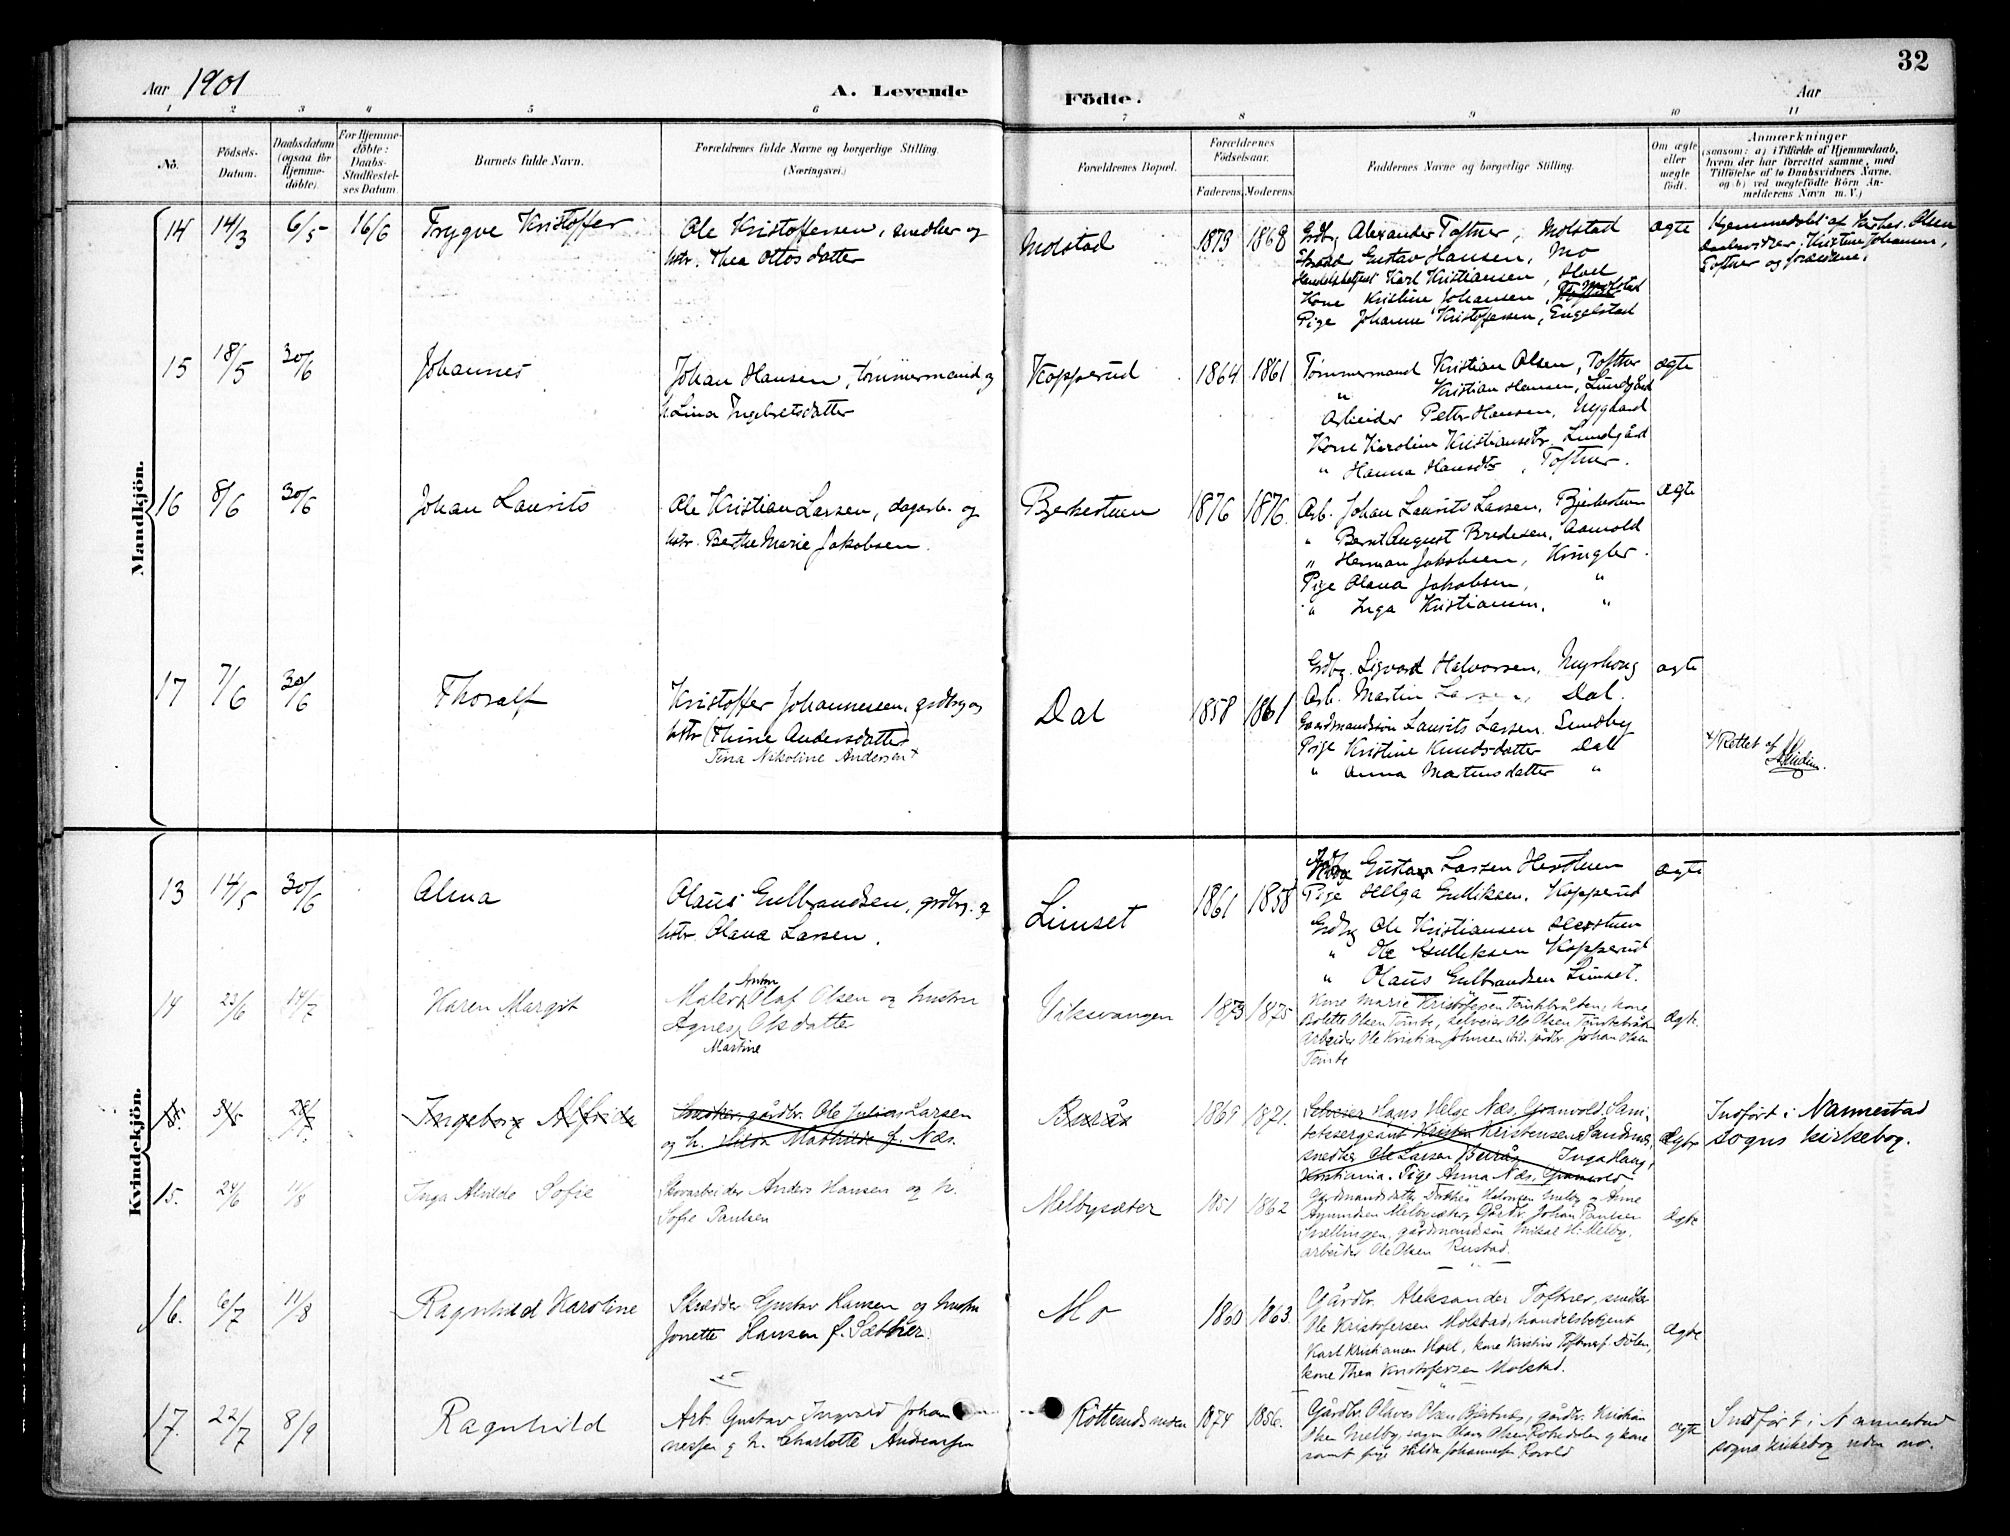 32
Aar 1901
A. Levende
Födte.
Aar
1 2 3 4 5 6 7 8 9 10 11
No.
Födsels-
Datum.
Daabsdatum
(ogsaa for
Hjemme-
döbte).
For Hjemme-
döbte:
Daabs-
Stadfæstel-
ses Datum.
Barnets fulde Navn.
Forældrenes fulde Navne og borgerlige Stilling.
(Næringsvei.)
Forældrenes Bopæl.
Forældrenes
Födselsaar.
Faderens. Moderens.
Faddernes Navne og borgerlige Stilling.
Om ægte
eller
uægte
födt.
Anmærkninger
(saasom: a) i Tilfælde af Hjemmedaab,
hvem der har forrettet samme, med
Tilföielse af to Daabsvidners Navne.
og b) ved uægtefödte Börn An-
melderens Navn m. V.)
Mandkjön.
14 14/3 6/5 16/6 Trygve Kristoffer
Ole Kristoffersen, snedker og
hstr. Thea Ottosdatter
Molstad 1873 1868
Grdbr. Alexander Toftner, Molstad
Gustav Hansen, Mo
Handelsbetjent Karl Kristiansen, Hoel
Kone Kristine Johansen, Molstad
Pige Johanne Kristoffersen, Engelstad
ægte
Hjemmedøbt af Kirkes. Olsen
Daabsvidner: Kristine Johansen,
Toftner og forældrene.
15 18/5 30/6 Johannes
Johan Hansen, tømmermand og
h. Lina Ingebretsdatter
Kopperud 1864 1861
Tømmermand Kristian Olsen, Toftner
" Kristian Hansen, Lundgård
Arbeider Petter Hansen, Nygaard
Kone Karoline Kristiansdtr. Lundgård
" Hanna Hansdtr, Toftner.
ægte
16 8/6 30/6 Johan Laurits
Ole Kristian Larsen, dagarb. og
hstr. Berthe Marie Jakobsen.
Bjerkestuen 1876 1876.
Arb. Johan Laurits Larsen, Bjerkestuen
" Bernt August Bredesen, Aamold
" Herman Jakobsen, Kringler.
Pige Olava Jakobsen, "
" Inga Kristiansen, "
ægte
17 7/6 30/6 Thoralf
Kristoffer Johannessen, grdbr. og
hstr (Thine Andersdatter)
Tina Nikoline Andersen +
Dal 1858 1861
Grdbr. Sigvart Halvorsen, Myrhoug
Arb. Martin Larsen, Dal.
Gaardmandssøn Laurits Larsen Sundby
Pige Kristine Knudsdatter Dal
" Anna Martinsdatter "
ægte
+/ Rettet af
Kvindekjön.
13 14/5 30/6 Alma
Olaus Gulbrandsen, grdbr. og
hstr. Olava Larsen.
Limset 1861 1858
Gustav Larsen Herstuen
Pige Helga Gulliksen, Kopperud
Grdbr Ole Kristiansen Herstuen
" Ole Gulliksen Kopperud
" Olaus Gulbrandsen Limset.
ægte
14 23/6 14/7 Karen Margit
Anton
Maler Olaf Olsen og hustru
Agnes Olsdatter
Martine
Viksvangen 1873 1875
Kone Marie Kristofersen Tømtebråten, kone
Olsen Tømte, selveier Ole Olsen Tømtebråten
Arbeider Ole Kristian Johnsen ibid. gårdbr. Johan Olsen
Tømte
ægte.
15. Ingeborg Alfride
Snedker, gårdbr. Ole Julius Larsen
og h. Hilda Mathilde f. Næs.
Burås 1869 1871.
Selveier Hans Helge Næs, Granvold, Sam-
Kristensen Sandnes,
snedker Ole Larsen Burås, Inga Haug,
Kristiania. Pige Anna Næs, Granvold
ægte
Indført i Nannestad
sogns kirkebog.
15. 24/6 11/8 Inga Alvilde Sofie
Skovarbeider Anders Hansen og h.
Sofie Paulsen
Melbysæter 1851 1862
Gårdmandsdatter Dorthea Melby og Anne
Amundsen Melbysæter, Gårdbr. Johan Paulsen
Snellingen, gårdmandssøn Mikal H. Melby,
arbeider Ole Olsen Rustad.
ægte
16. 6/7 11/8 Ragnhild Karoline
Skrædder Gustav Hansen og hustru
Jonette Hansen f. Sætner
Mo 1860 1863.
Gårdbr. Aleksander Toftner, snedker
Ole Kristofersen Molstad, handelsbetjent
Karl Kristiansen Hoel, kone Kristine Toftner f. Dølen,
kone Thea Kristofersen Molstad.
ægte
17. 22/7 8/9 Ragnhild
Arb. Gustav Ingvald Johan-
nessen og h. Charlotte Andreassen
1874 1856.
Gårdbr. Olaves Olsen Bjertnæs, gårdbr. Kristian
Olsen Melby, Olsen og kone
samt pige Hilda Johannesen
ægte
Indført i Nannestad
sogns kirkebog uden no.